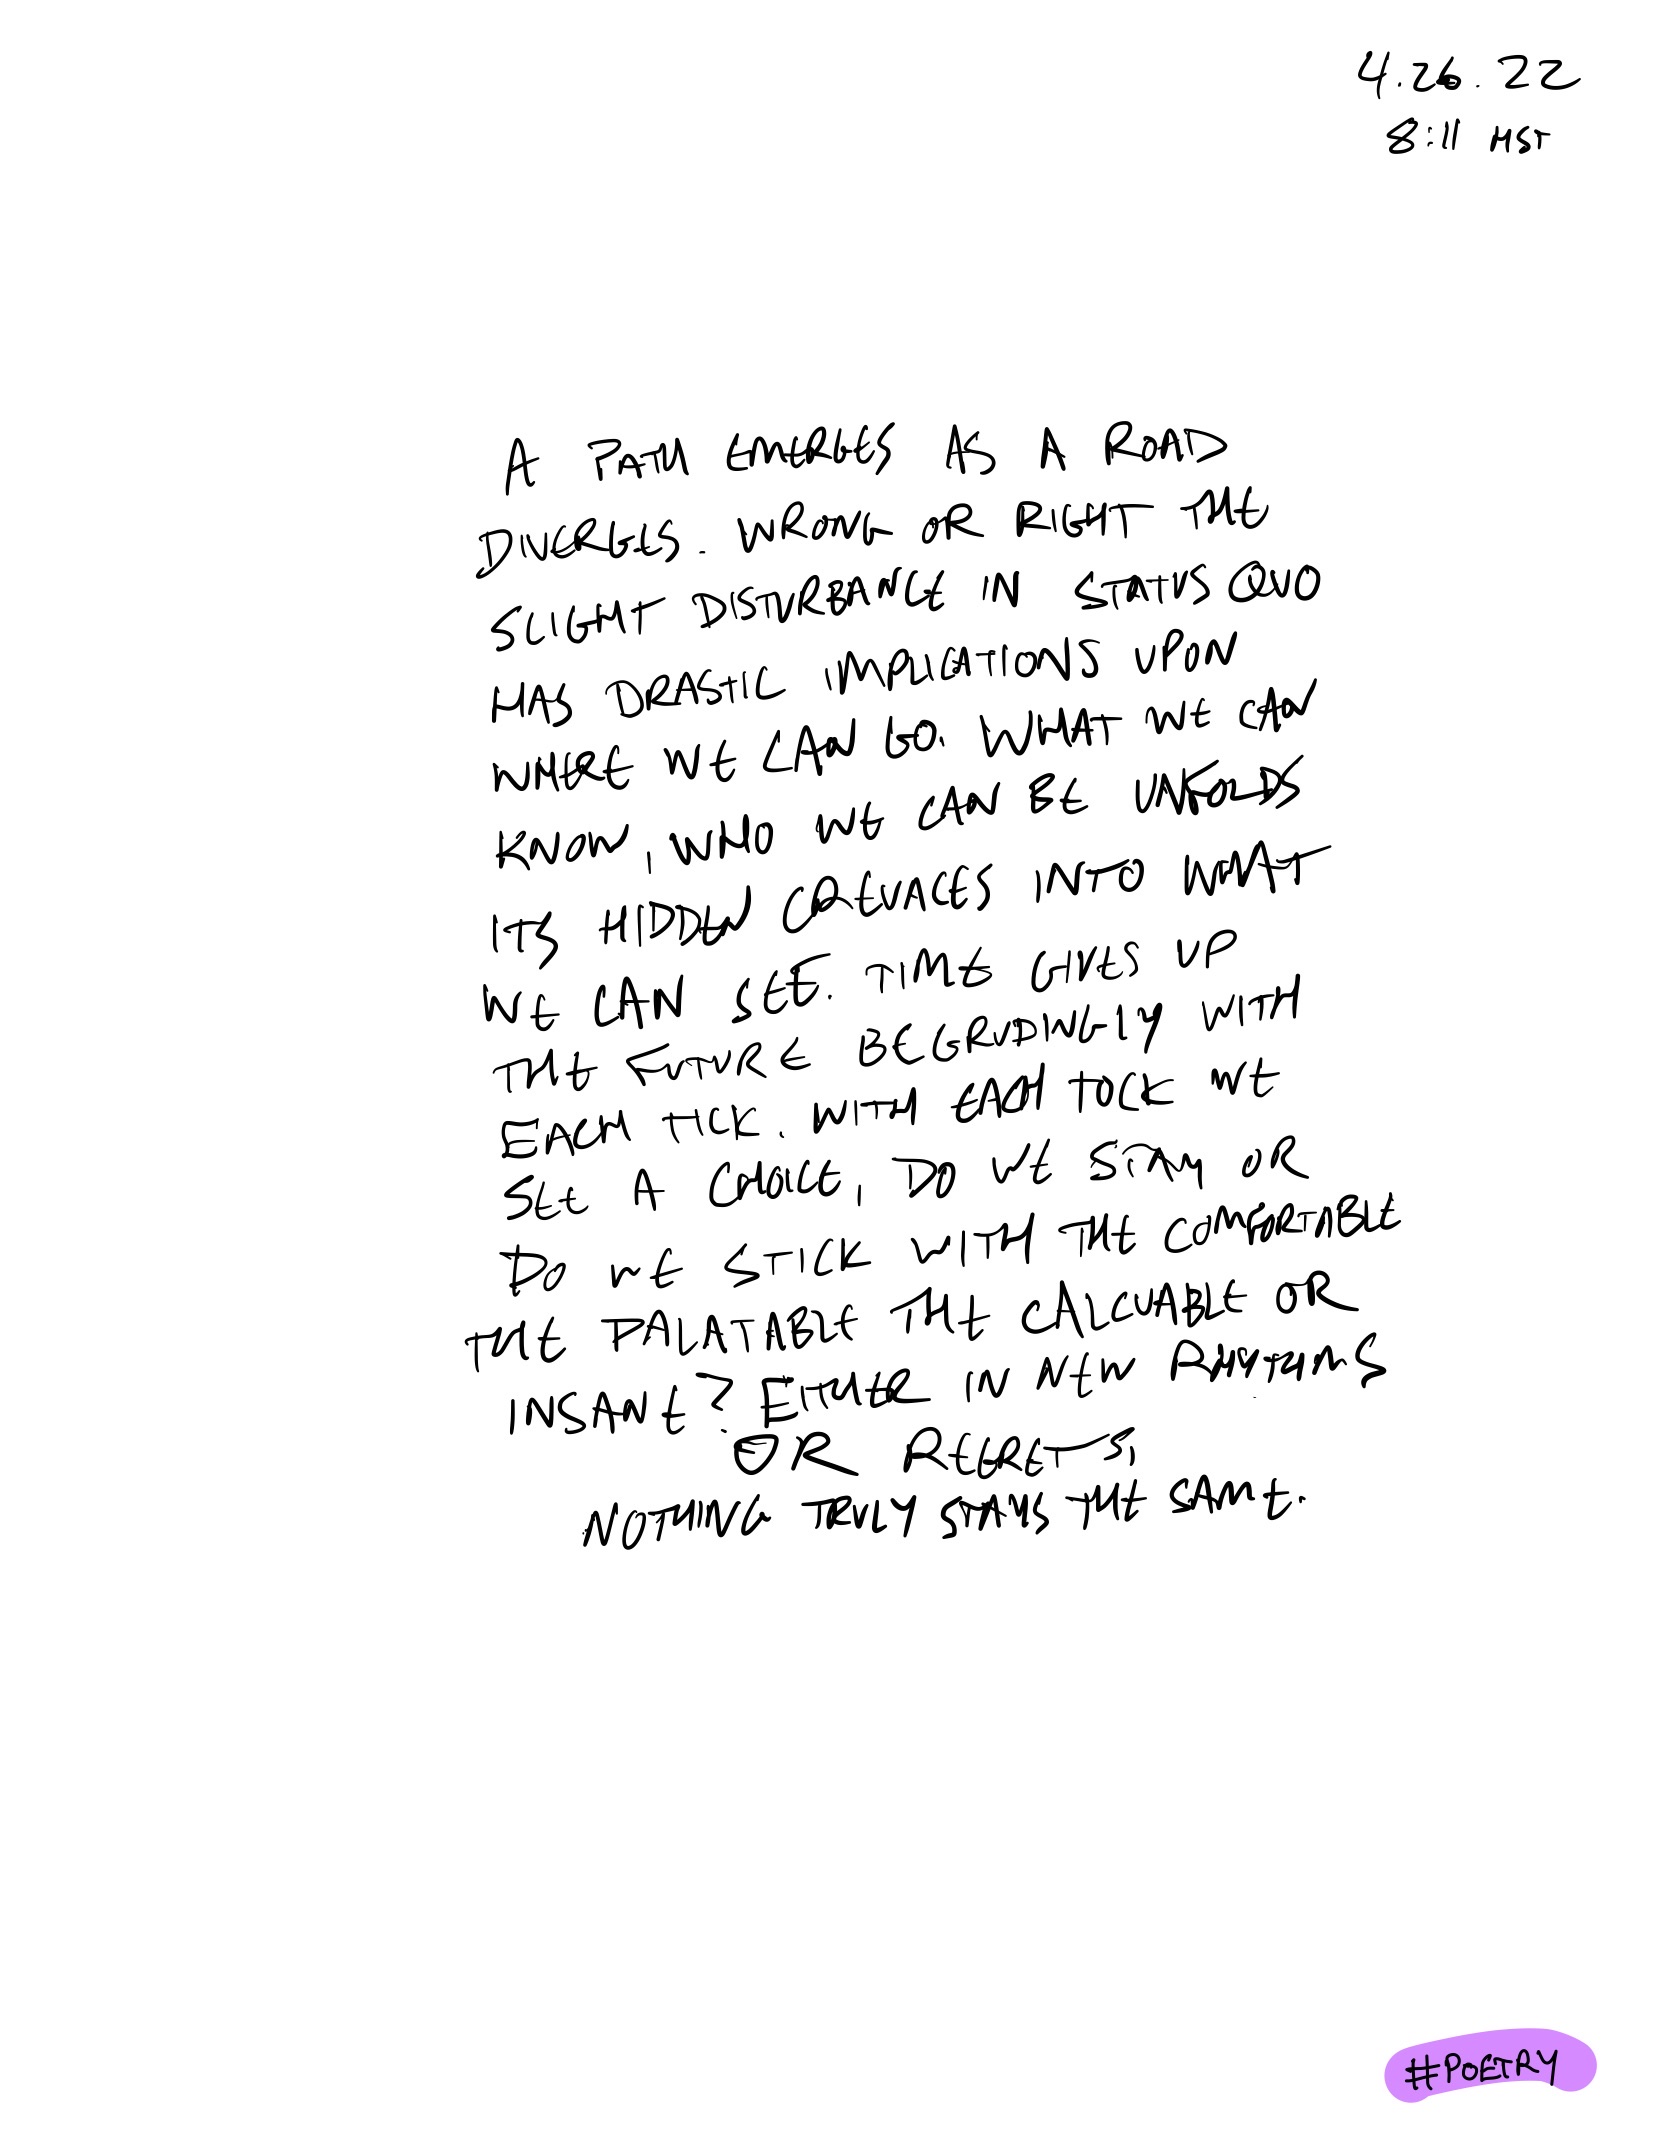 4.26.22
8:11 MST
A PATH EMERGES AS A ROAD
DIVERGES. WRONG OR RIGHT THE
SLIGHT DISTURBANCE IN STATUS QUO
HAS DRASTIC IMPLICATIONS UPON
WHERE WE CAN GO. WHAT WE CAN
KNOW, WHO WE CAN BE UNFOLDS
ITS HIDDEN CREVACES INTO WHAT
WE CAN SEE. TIME GIVES UP
THE FUTURE BEGRUDINGLY WITH
EACH TICK. WITH EACH TOCK WE
SEE A CHOICE, DO WE STAY OR
DO WE STICK WITH THE COMFORTABLE
THE PALATABLE THE CALCUABLE OR
INSANE? EITHER IN NEW RHYTHMS
OR REGRETS,
NOTHING TRULY STAYS THE SAME.
#POETRY